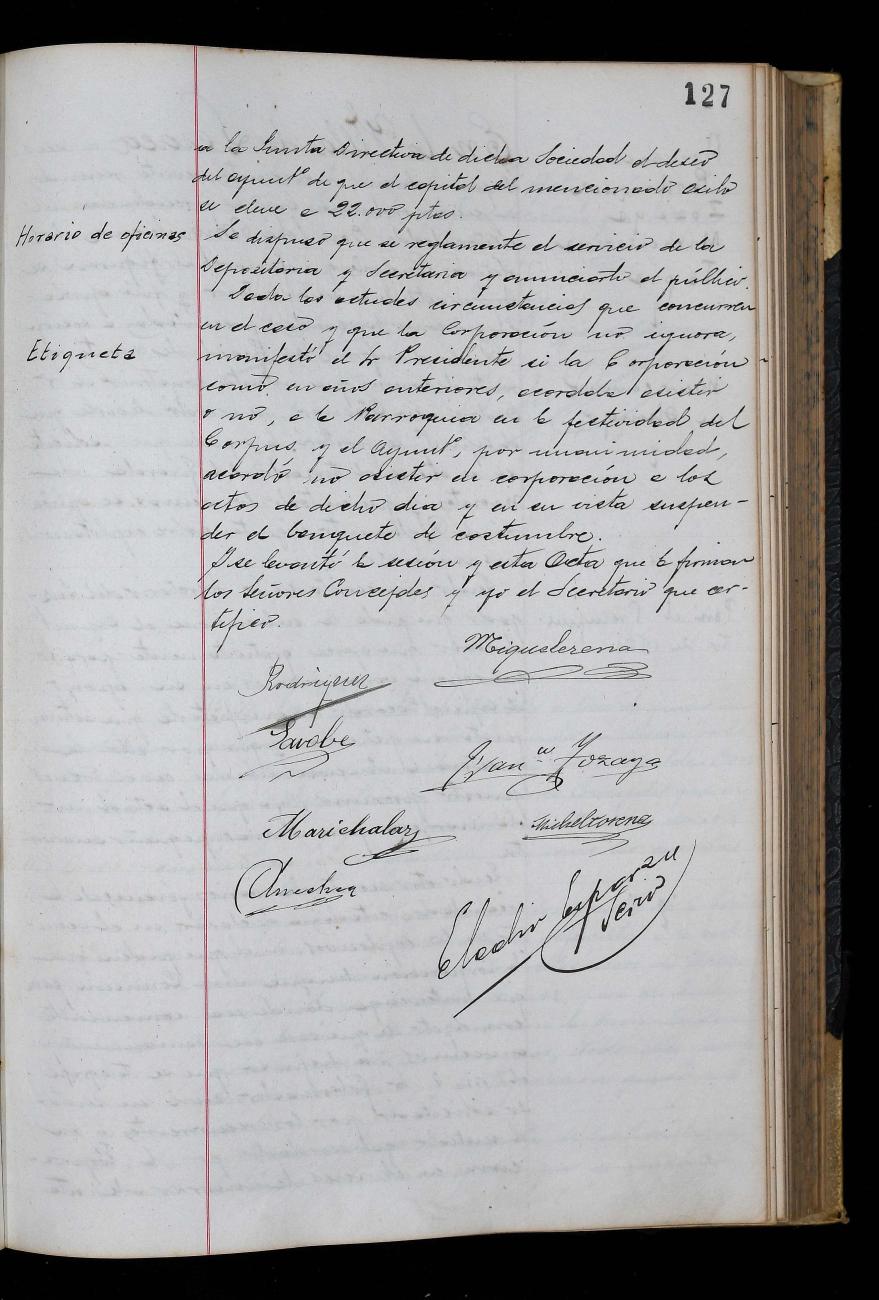 127
a la Junta Directiva de dicha Sociedad el deseo
del ayuntº de que el capital del mencionado asilo
se eleve a 22.000 ptas.
Horario de oficinas
Se dispuso que se reglamente el servicio de la
Depositaria y Secretaria y anunciarlo al público.
Dada las actuales circunstancias que concurren
en el caso y que la Corporación no ignora,
Etiqueta
manifestó el Sr Presidente si la Corporación
como en años anteriores, acordaba asistir
o no, a la Parroquia en la festividad del
Corpus y el Ayuntº, por unanimidad,
acordó no asistir en corporación a los
actos de dicho dia y en su vista suspen-
der el banquete de costumbre.
Y se levantó la sesión y esta Acta que la firman
los Señores Concejales y yo el Secretario que cer-
tifico.
Miquelerena
Rodriguez
Garobe
Juan Yozaya
Marichalar
Micheltorena
Eladio Esparza
Serio